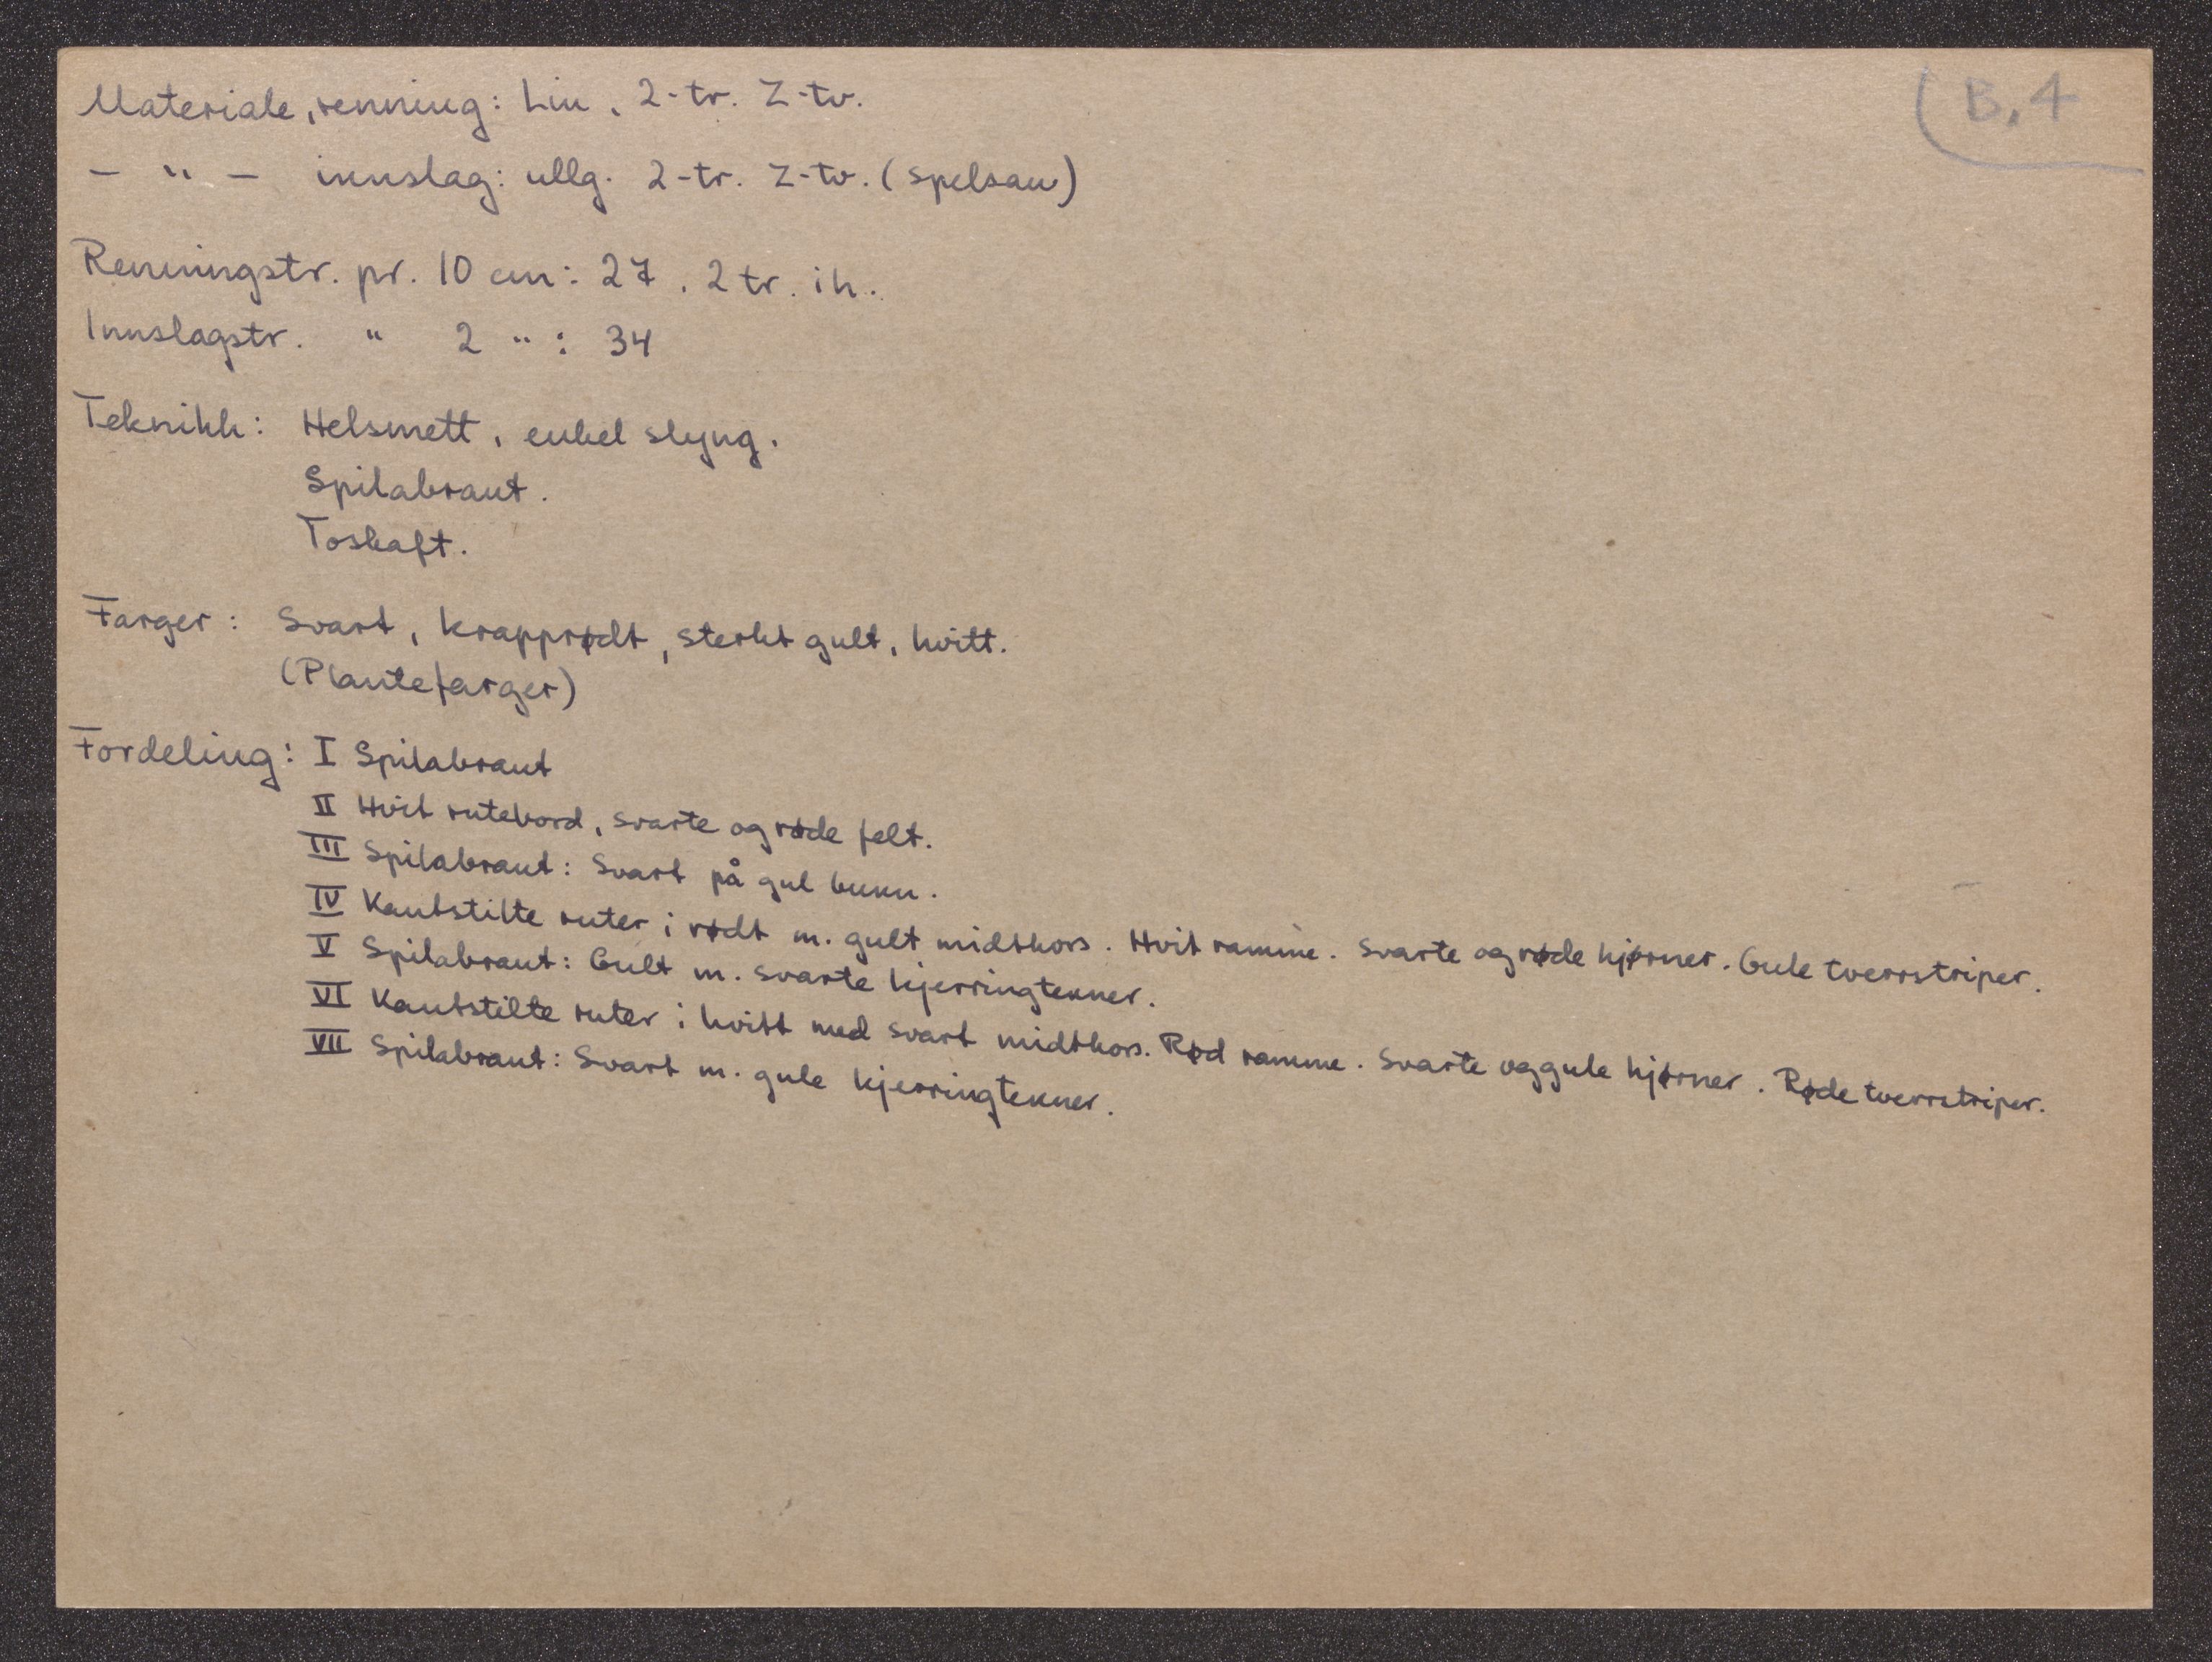 B.4
Materiale, renning: Lin, 2-tr. Z-tv.
- " - innslag: ullg. 2-tr. Z-tv. (spelsau)
Renningstr. pr. 10 cm: 27, 2 tr. i h.
Innslagstr. " 2 " : 34
Teknikk: Helsmett, enkel slyng.
Spilabraut.
Toskaft.
Farger: Svart, krapprødt, sterkt gult, hvitt.
(Plantefarger)
Fordeling: I Spilabraut
II Hvit rutebord, svarte og røde felt.
III Spilabraut: Svart på gul bunn.
IV Kantstilte ruter i rødt m. gult midtkors. Hvit ramme. Svarte og røde hjørner. Gule tverrstriper.
V Spilabraut: Gult m. svarte kjerringtenner.
VI Kantstilte ruter i hvitt med svart midtkors. Rød ramme. Svarte og gule hjørner. Røde tverrstriper.
VII Spilabraut: Svart m. gule kjerringtenner.